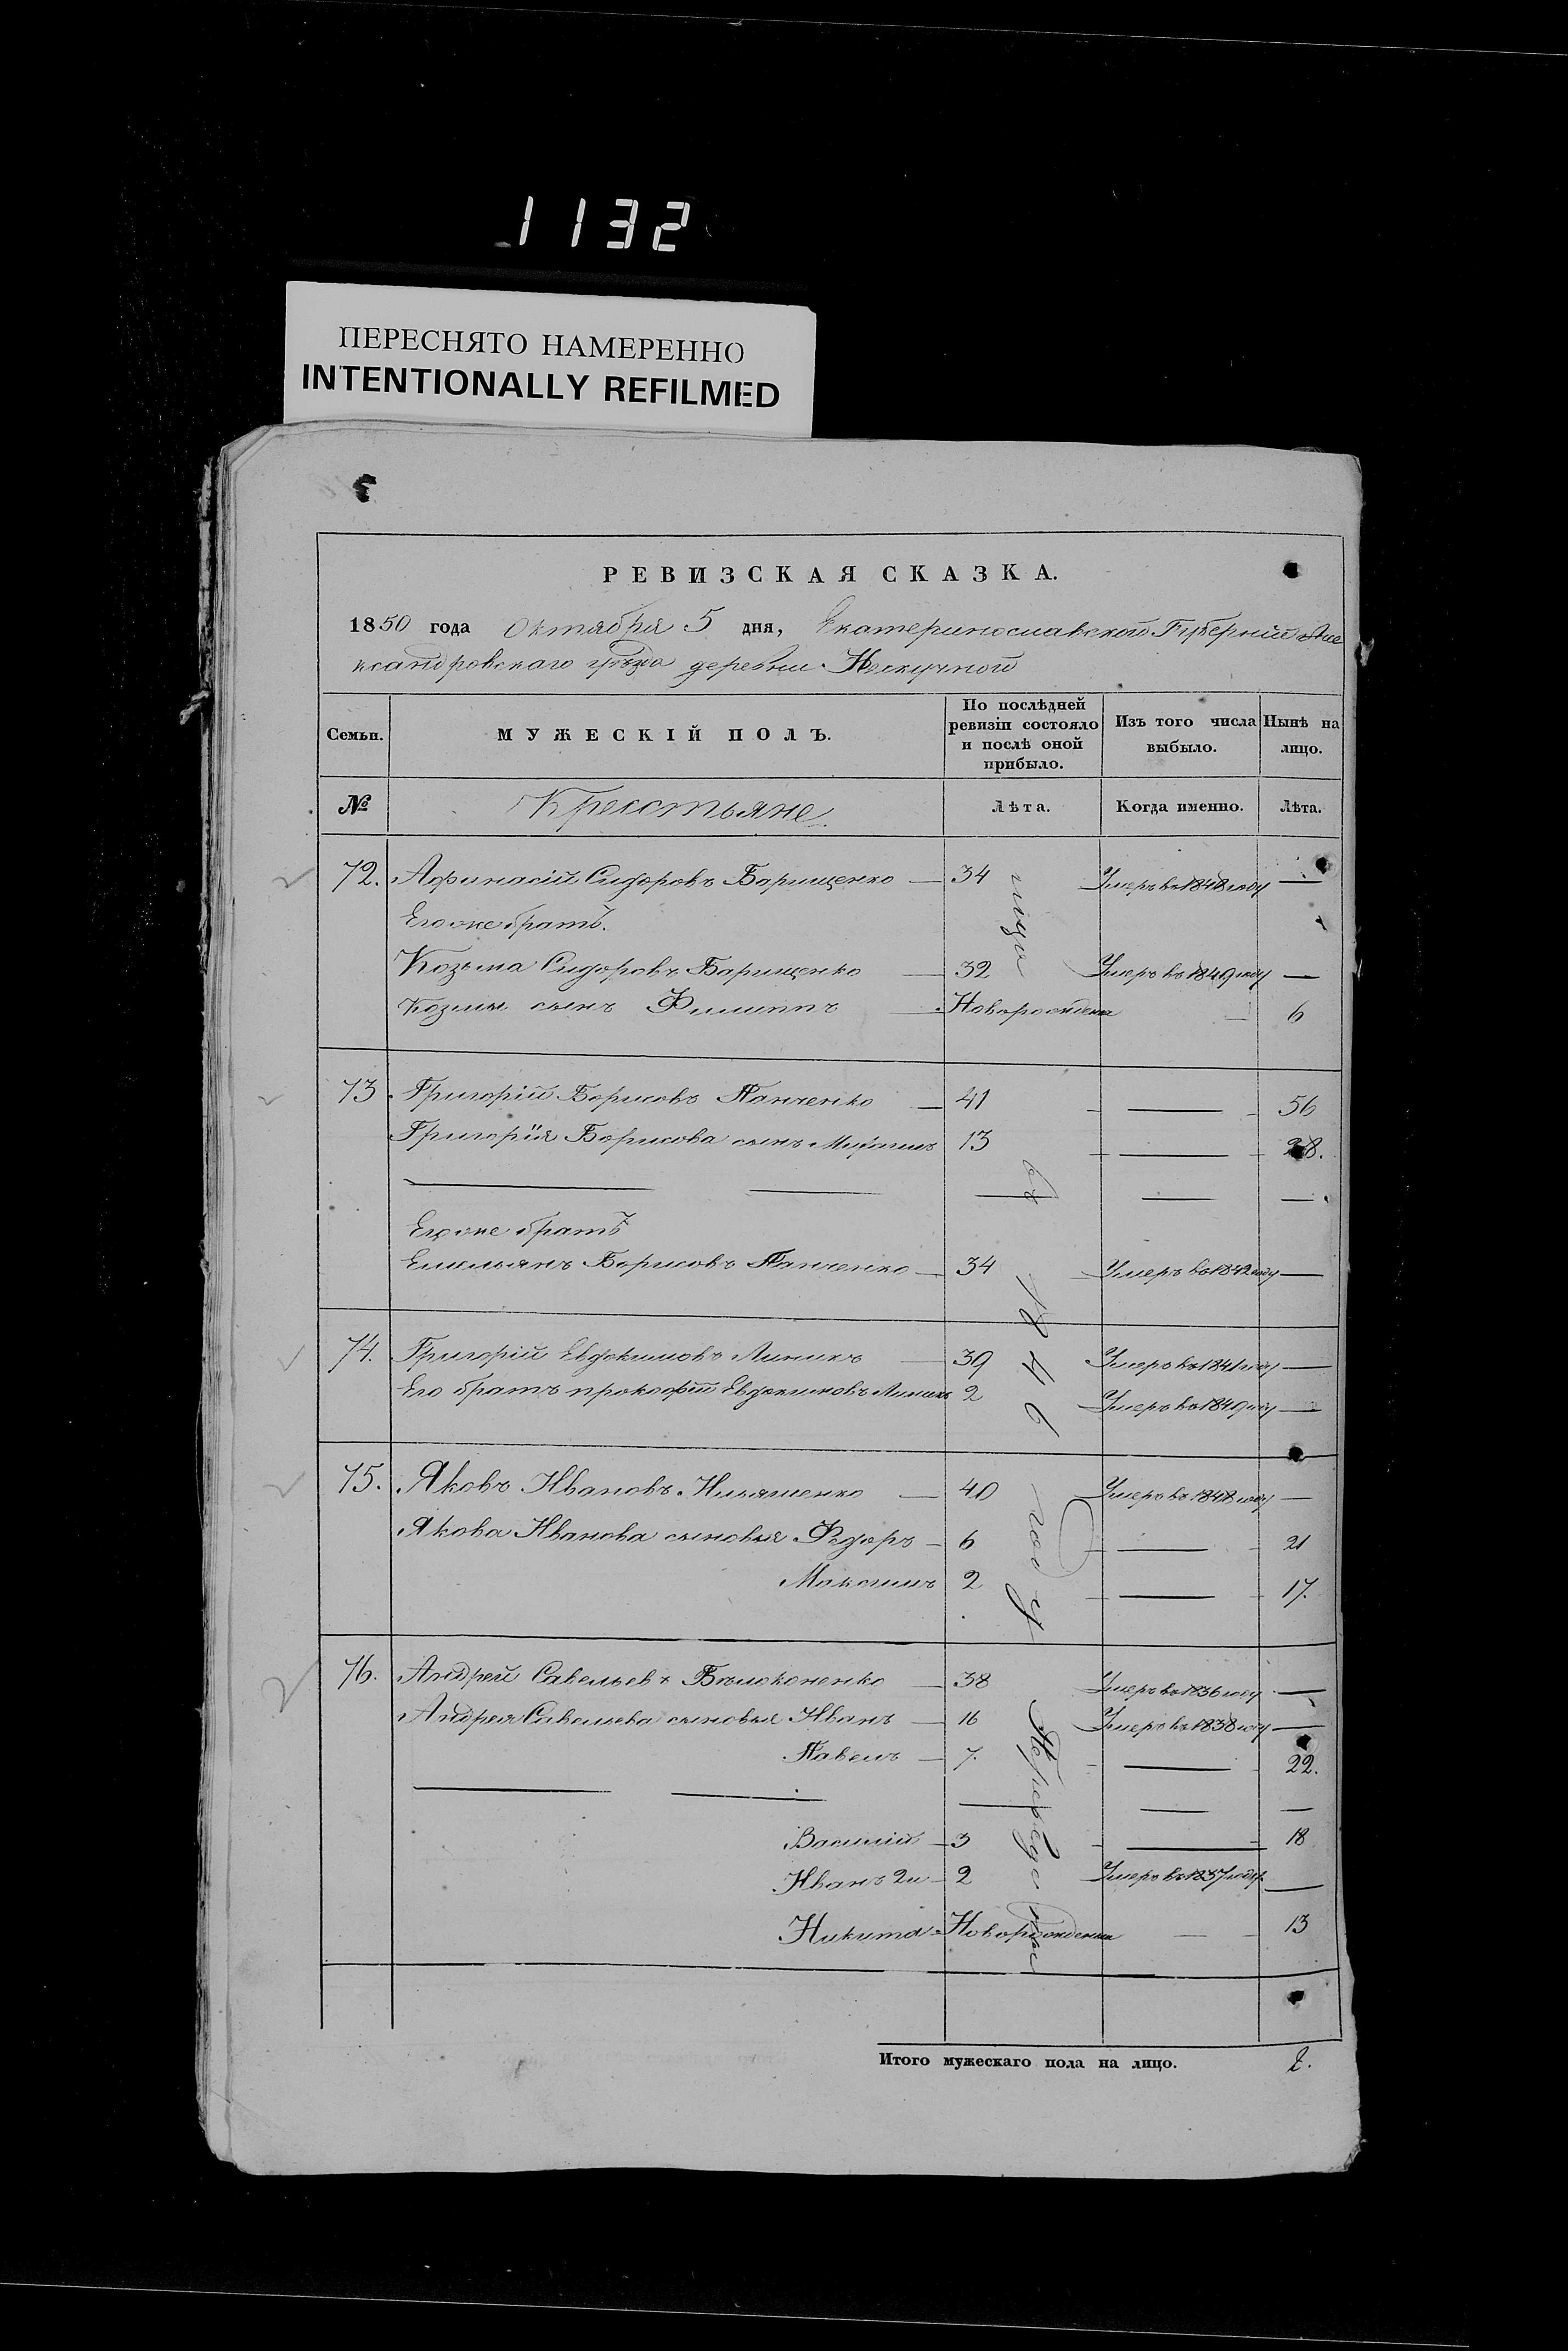 1132
ПЕРЕСНЯТО НАМЕРЕННО
INTENTIONALLY REFILMED
РЕВИЗСКАЯ СКАЗКА.
1850 года Октября 5 дня, Екатеринославской Губерніи Але
ксандровскаго уѣзда деревни Нескучной
Семьи. МУЖЕСКІЙ ПОЛЪ. По послѣдней ревизіи состояло и послѣ оной прибыло. Изъ того числа выбыло. Нынѣ на лицо.
№ Крестьяне Лѣта. Когда именно. Лѣта.
72. Афанасій Сидоровъ Борищенко — 34 Умеръ въ 1848 году —
Его же братъ.
Козьма Сидоровъ Борищенко — 32 Умеръ въ 1849 году —
Козьмы сынъ Филиппъ — Новорожденъ — 6
73 Григорій Борисовъ Панченко — 41 — 56
Григорія Борисова сынъ 13 — 28.
Его же братъ
Емельянъ Борисовъ Панченко — 34 Умеръ въ 1842 году —
74. Григорій Евдокимовъ Линикъ — 39 Умеръ въ 1841 году —
Его братъ прокофій Евдокимовъ Линикъ 2 Умеръ въ 1849 году —
75. Яковъ Ивановъ Ильяшенко — 40 Умеръ въ 1848 году —
Якова Иванова сыновья Федоръ — 6 — 21
Максимъ 2 — 17.
76. Андрей Савельевъ Бѣлоконенко — 38 Умеръ въ 1836 году —
Андрея Савельева сыновья Иванъ — 16 Умеръ въ 1838 году —
Павелъ — 7. — 22.
Василій — 3 — 18
Иванъ 2й — 2 Умеръ въ 1837 году —
Никита — Новорожденъ — 13
Переведены въ 1846 году
Итого мужескаго пола на лицо. 2.